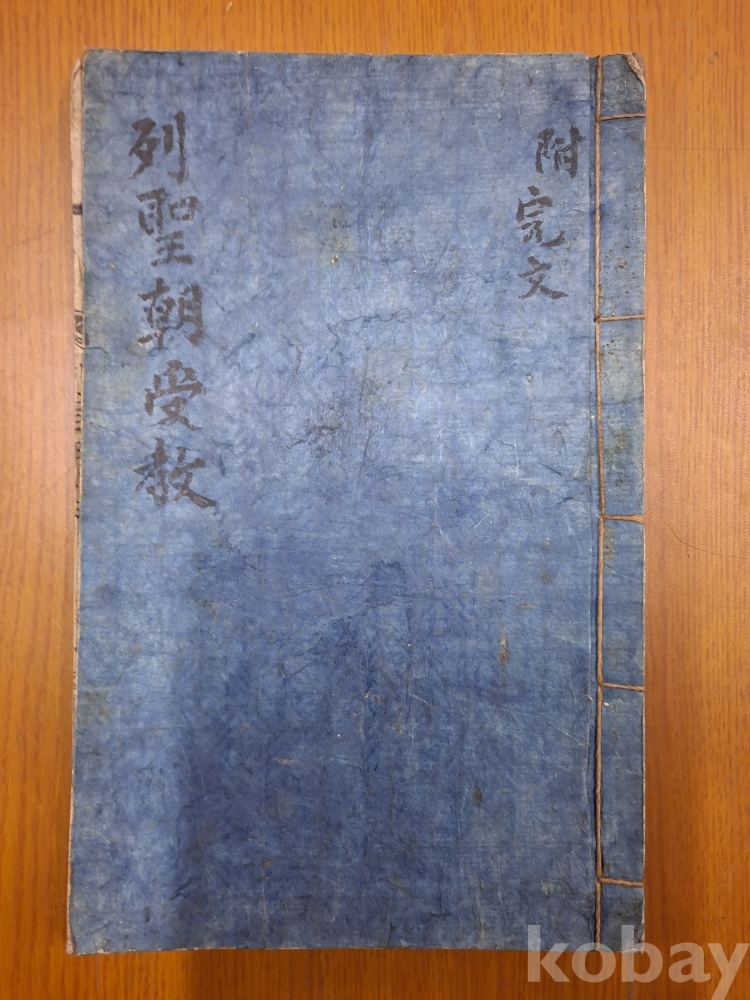 附完文
列聖朝受教
kobay